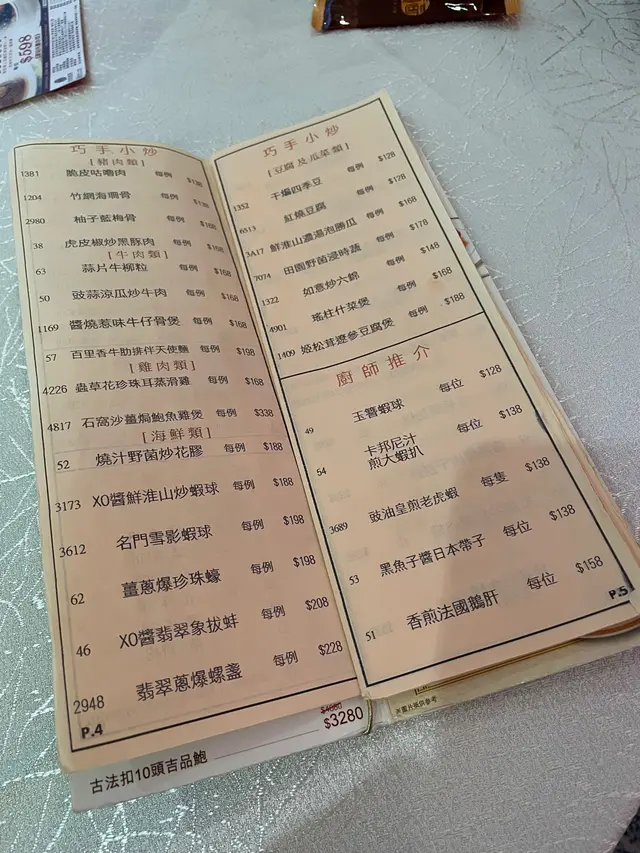 $598
巧手小炒
[豬肉類]
1381 脆皮咕嚕肉 每例
1204 竹網海珊骨 每例 $138
2980 柚子藍梅骨 每例 $168
38 虎皮椒炒黑豚肉 每例 $168
[牛肉類]
63 蒜片牛柳粒 每例 $168
50 豉蒜涼瓜炒牛肉 每例 $168
1169 醬燒惹味牛仔骨煲 每例 $168
57 百里香牛肋排伴天使麵 每例 $198
[雞肉類]
4226 蟲草花珍珠耳蒸滑雞 每例 $168
4817 石窩沙薑焗鮑魚雞煲 每例 $338
[海鮮類]
52 燒汁野菌炒花膠 每例 $188
3173 XO醬鮮淮山炒蝦球 每例 $188
3612 名門雪影蝦球 每例 $198
62 薑蔥爆珍珠蠔 每例 $198
46 XO醬翡翠象拔蚌 每例 $208
2948 翡翠蔥爆螺盞 每例 $228
P.4
巧手小炒
[豆腐及瓜菜類]
1352 干煸四季豆 每例 $128
6513 紅燒豆腐 每例 $128
3A17 鮮淮山濃湯泡勝瓜 每例 $168
7074 田園野菌浸時蔬 每例 $178
1322 如意炒六錦 每例 $148
4901 瑤柱什菜煲 每例 $168
1409 姬松茸遼參豆腐煲 每例 $188
廚師推介
49 玉簪蝦球 每位 $128
54 卡邦尼汁
煎大蝦扒 每位 $138
3689 豉油皇煎老虎蝦 每隻 $138
53 黑魚子醬日本帶子 每位 $138
51 香煎法國鵝肝 每位 $158
P.5
古法扣10頭吉品鮑 $4680 $3280
※圖片祇供參考